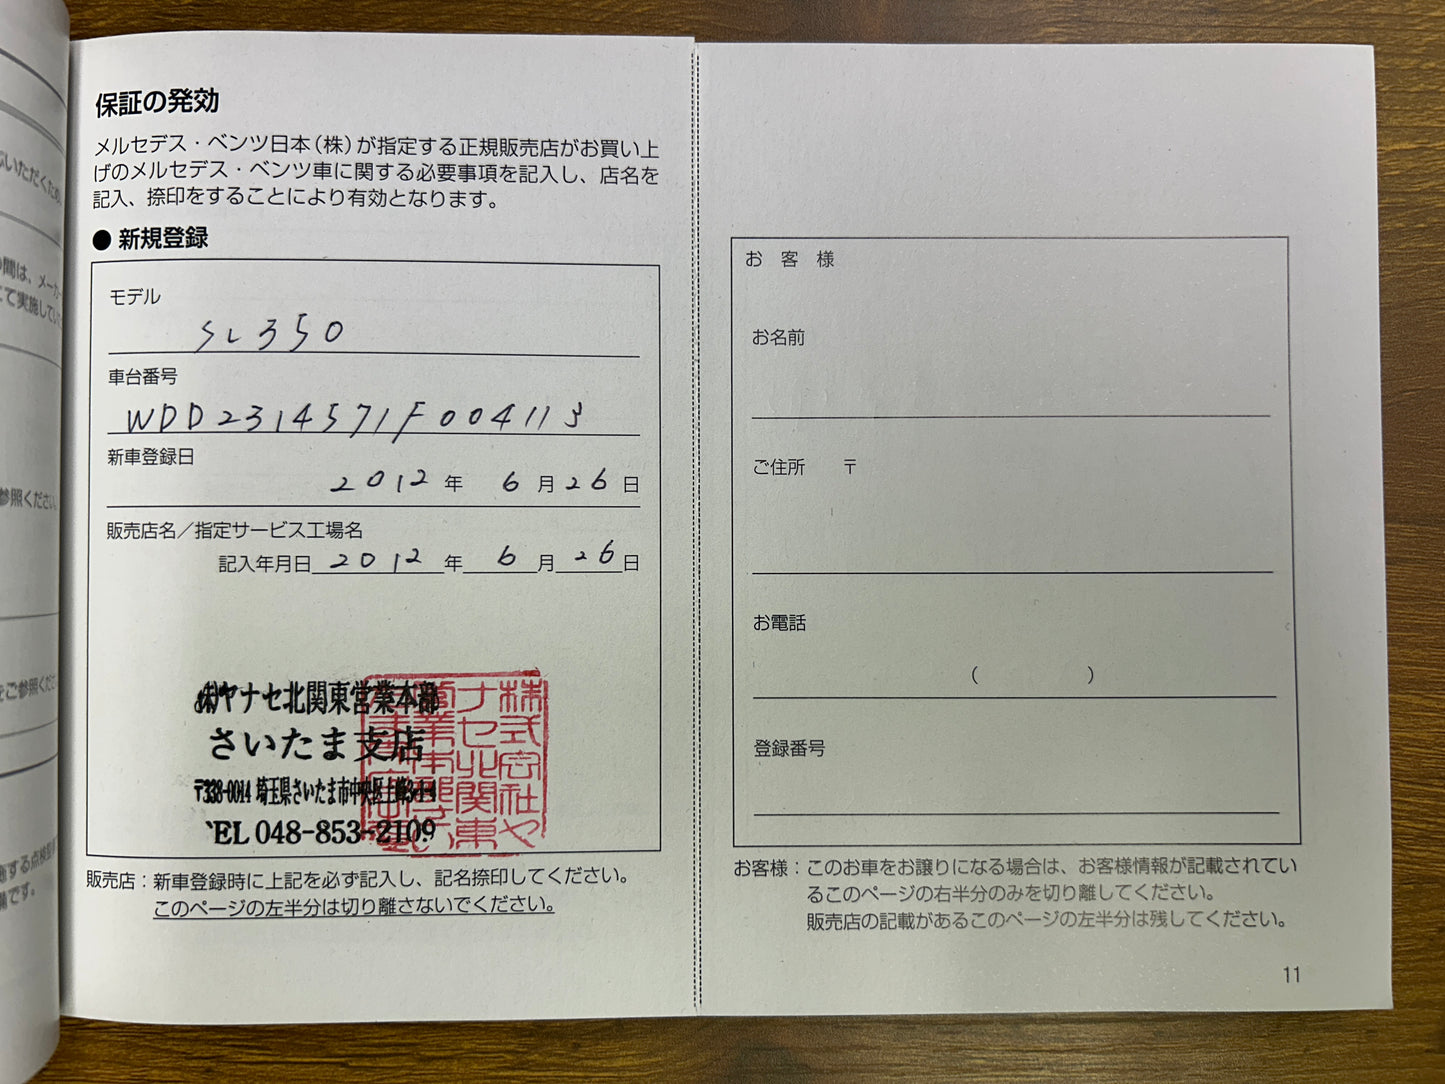 保証の発効
メルセデス・ベンツ日本(株)が指定する正規販売店がお買い上
げのメルセデス・ベンツ車に関する必要事項を記入し、店名を
記入、捺印をすることにより有効となります。
● 新規登録
モデル
SL350
車台番号
WDD2314571F004113
新車登録日
2012 年 6 月 26 日
販売店名／指定サービス工場名
記入年月日 2012 年 6 月 26 日
㈱ヤナセ北関東営業本部
さいたま支店
〒338-0014 埼玉県さいたま市中央区上峰3-1-4
TEL 048-853-2109
株式会社ヤ
ナセ北関東
営業本部
販売店：新車登録時に上記を必ず記入し、記名捺印してください。
このページの左半分は切り離さないでください。
お客様
お名前
ご住所 〒
お電話
( )
登録番号
お客様：このお車をお譲りになる場合は、お客様情報が記載されてい
るこのページの右半分のみを切り離してください。
販売店の記載があるこのページの左半分は残してください。
11
ぶいただくため、
の間は、メーカー
にて実施してい
参照ください。
をご参照くださ